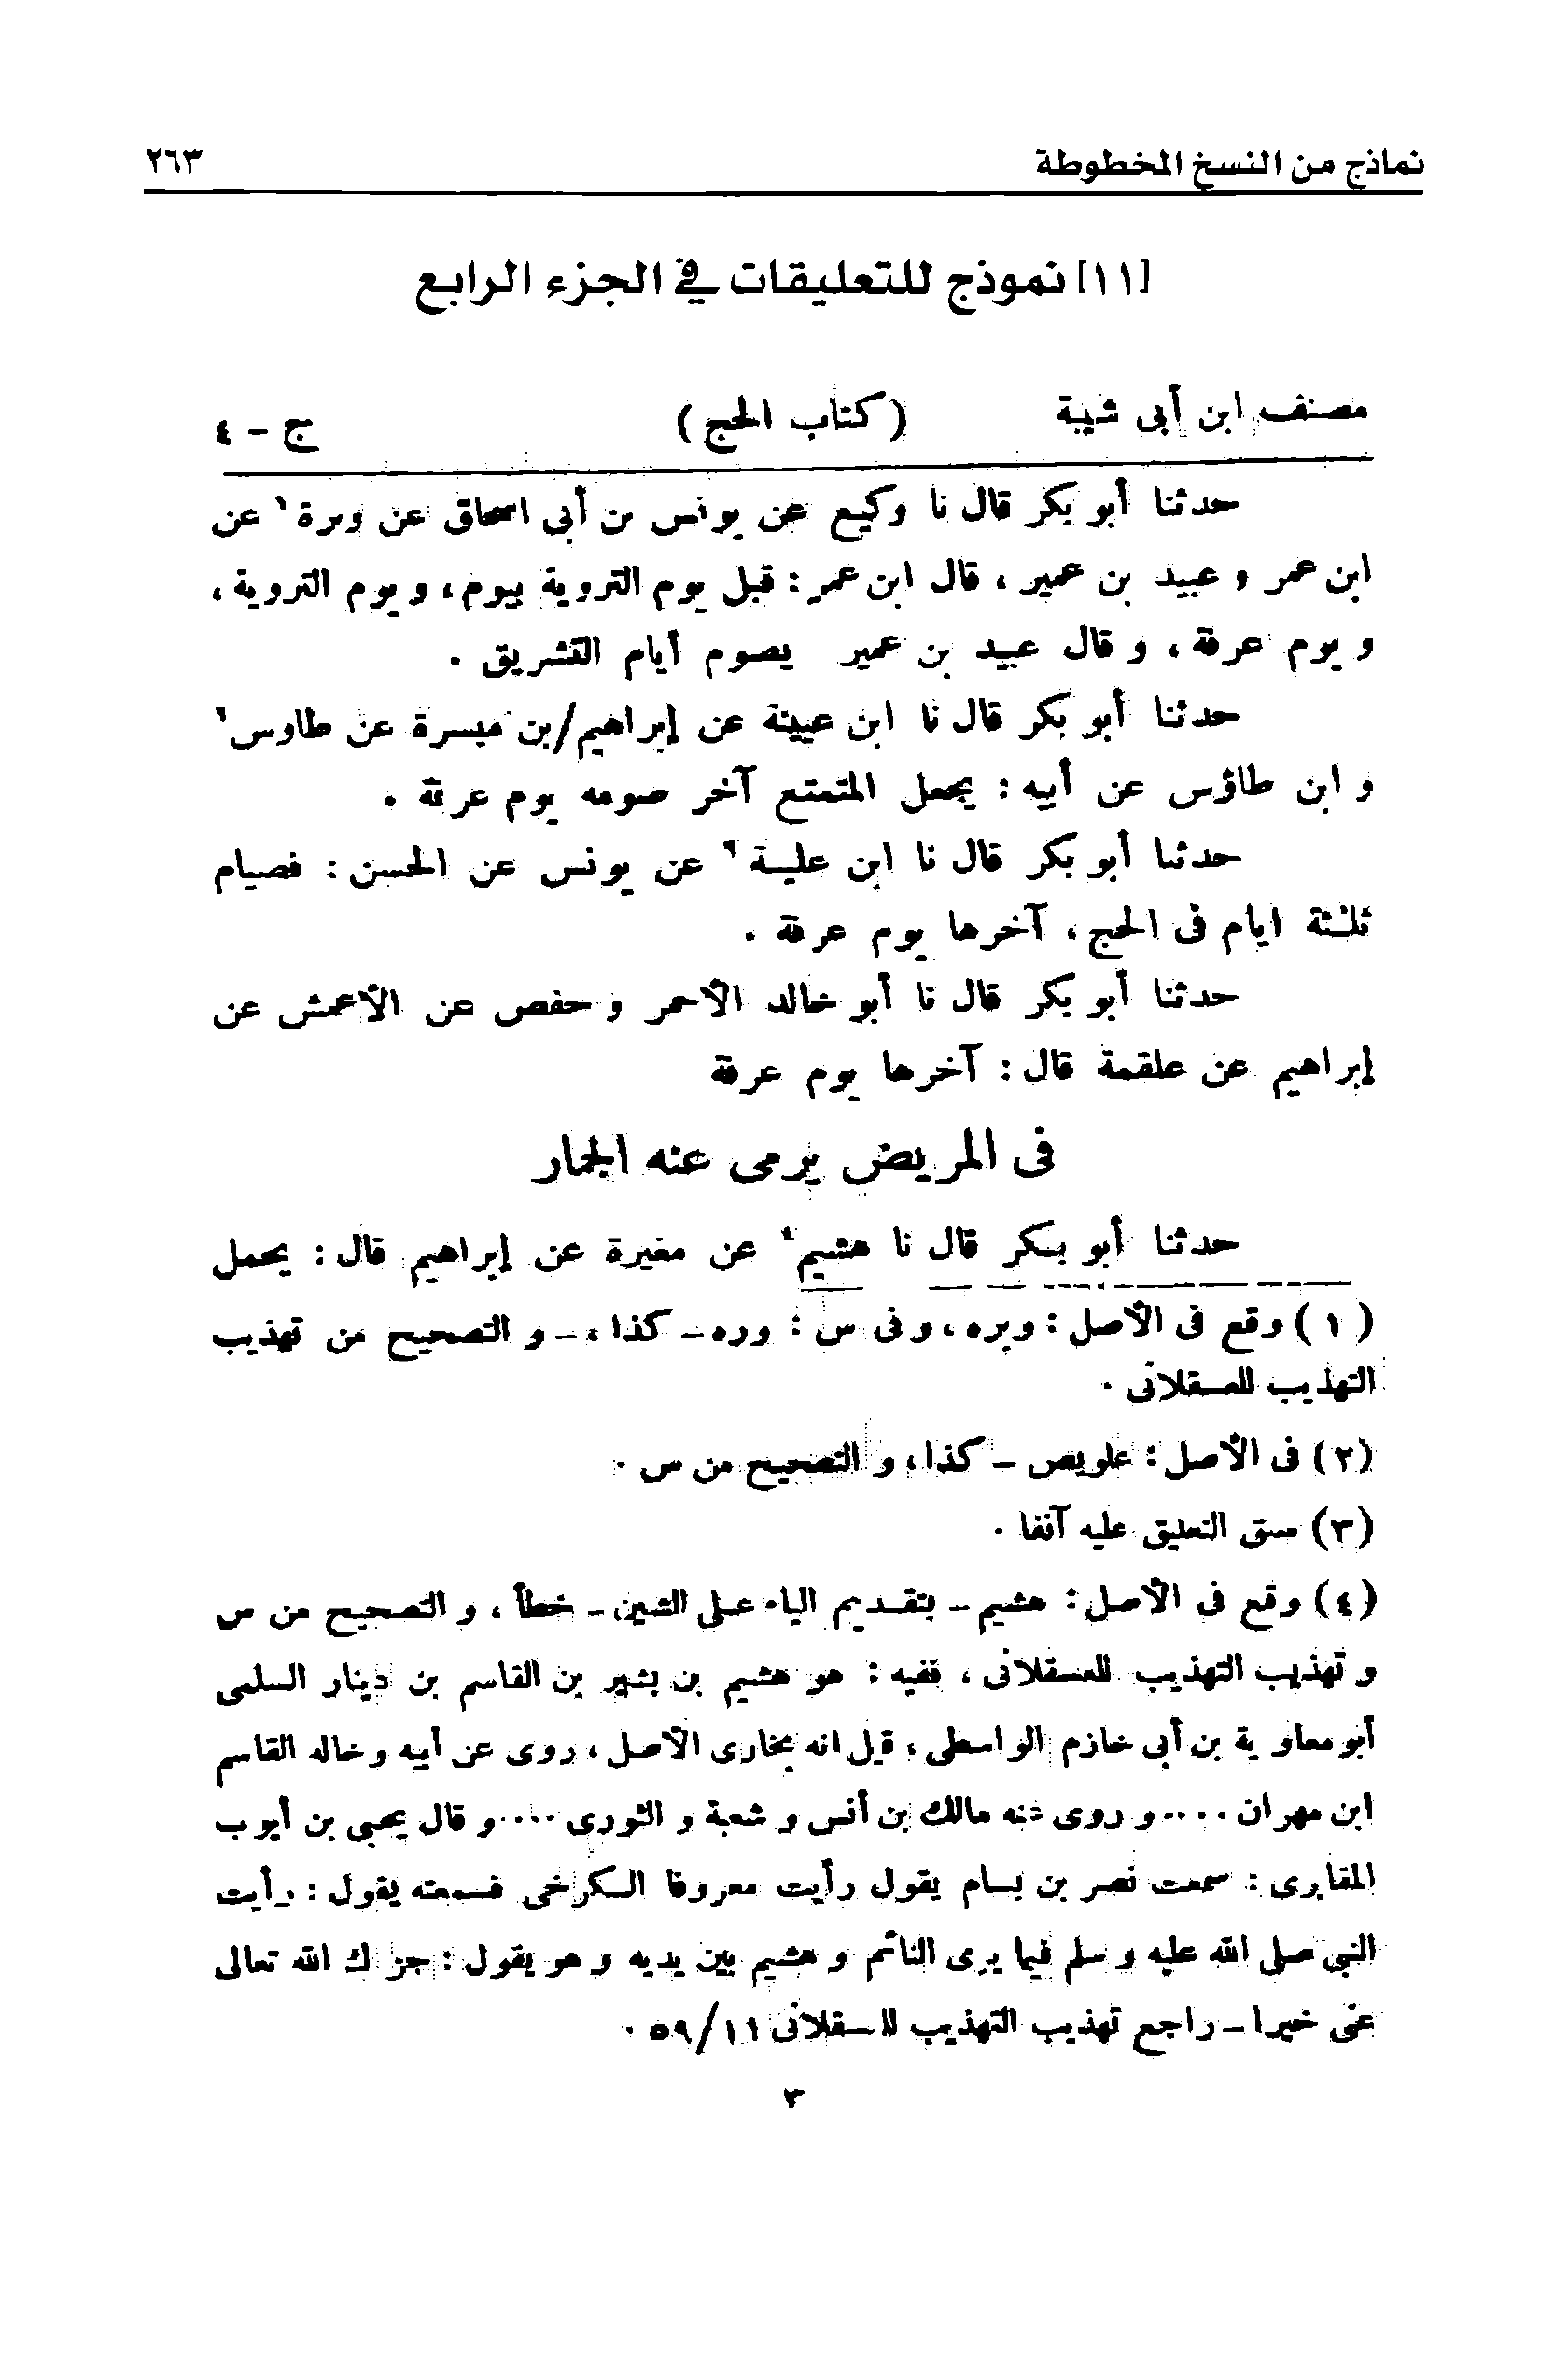 نماذج من النسخ المخطوطة ٢٦٣
[١١] نموذج للتعليقات في الجزء الرابع
مصنف ابن أبى شيبة (كتاب الحج) ج - ٤
حدثنا أبو بكر قال نا وكيع عن يونس بن أبى اسحاق عن وبرة ١ عن
ابن عمر و عبيد بن عمير ، قال ابن عمر : قبل يوم التروية بيوم، و يوم التروية ،
و يوم عرفة ، و قال عبيد بن عمير يصوم أيام التشريق .
حدثنا أبو بكر قال نا ابن عيينة عن إبراهيم/بن ميسرة عن طاوس ٢
و ابن طاؤس عن أبيه : يجعل المتمتع آخر صومه يوم عرفة .
حدثنا أبو بكر قال نا ابن علية ٣ عن يونس عن الحسن : فصيام
ثلثة ايام فى الحج ، آخرها يوم عرفة .
حدثنا أبو بكر قال نا أبو خالد الأحمر و حفص عن الأعمش عن
إبراهيم عن علقمة قال : آخرها يوم عرفة
فى المريض يرمى عنه الجمار
حدثنا أبو بكر قال نا هشيم ٤ عن مغيرة عن إبراهيم قال : يحمل
(١) وقع فى الأصل : وبره ، وفى س : وره - كذا ، - و التصحيح من تهذيب
التهذيب للعسقلانى .
(٢) فى الأصل : علويص - كذا ، و التصحيح من س .
(٣) سبق التعليق عليه آنفا .
(٤) وقع فى الأصل : هثيم - بتقديم الياء على الشين - خطأ ، و التصحيح من س
و تهذيب التهذيب للعسقلانى ، ففيه : هو هشيم بن بشير بن القاسم بن دينار السلمى
أبو معاوية بن أبى خازم الواسطى ، قيل انه بخارى الأصل ، روى عن أبيه و خاله القاسم
ابن مهران .... و روى عنه مالك ابن أنس و شعبة و الثورى .... و قال يحيى بن أيوب
المقابرى : سمعت نصر بن بسام يقول رأيت معروفا الكرخى فسمعته يقول : رأيت
النبى صلى الله عليه و سلم فيما يرى النائم و هشيم بين يديه و هو يقول : جزاك الله تعالى
عنى خيرا - راجع تهذيب التهذيب للعسقلانى ١١/٥٩ .
٣